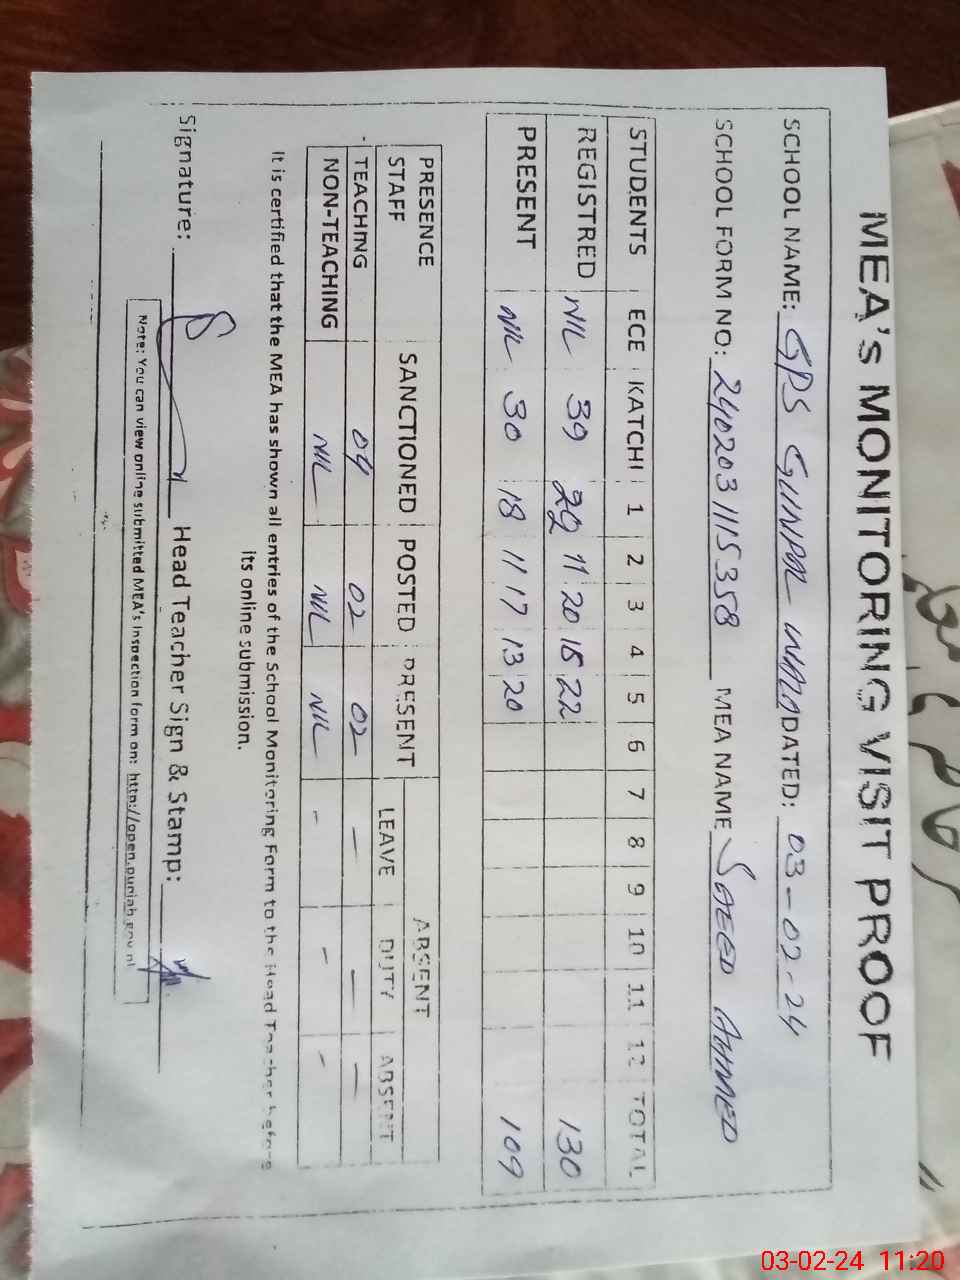 MEA's MONITORING VISIT PROOF
SCHOOL NAME: GPS GUNPAL WALA DATED: 03-02-24
SCHOOL FORM NO: 2402031115358 MEA NAME SAEED AHMED
STUDENTS ECE KATCHI 1 2 3 4 5 6 7 8 9 10 11 12 TOTAL
REGISTRED NIL 39 11 20 15 22 130
PRESENT NIL 30 18 11 17 13 20 109
PRESENCE STAFF SANCTIONED POSTED PRESENT ABSENT
LEAVE DUTY ABSENT
TEACHING 04 02 02 - - -
NON-TEACHING NIL NIL NIL - - -
It is certified that the MEA has shown all entries of the School Monitoring Form to the Head Teacher before
its online submission.
Signature: Head Teacher Sign & Stamp:
Note: You can view online submitted MEA's Inspection form on: http://open.punjab.gov.pk
03-02-24 11:20